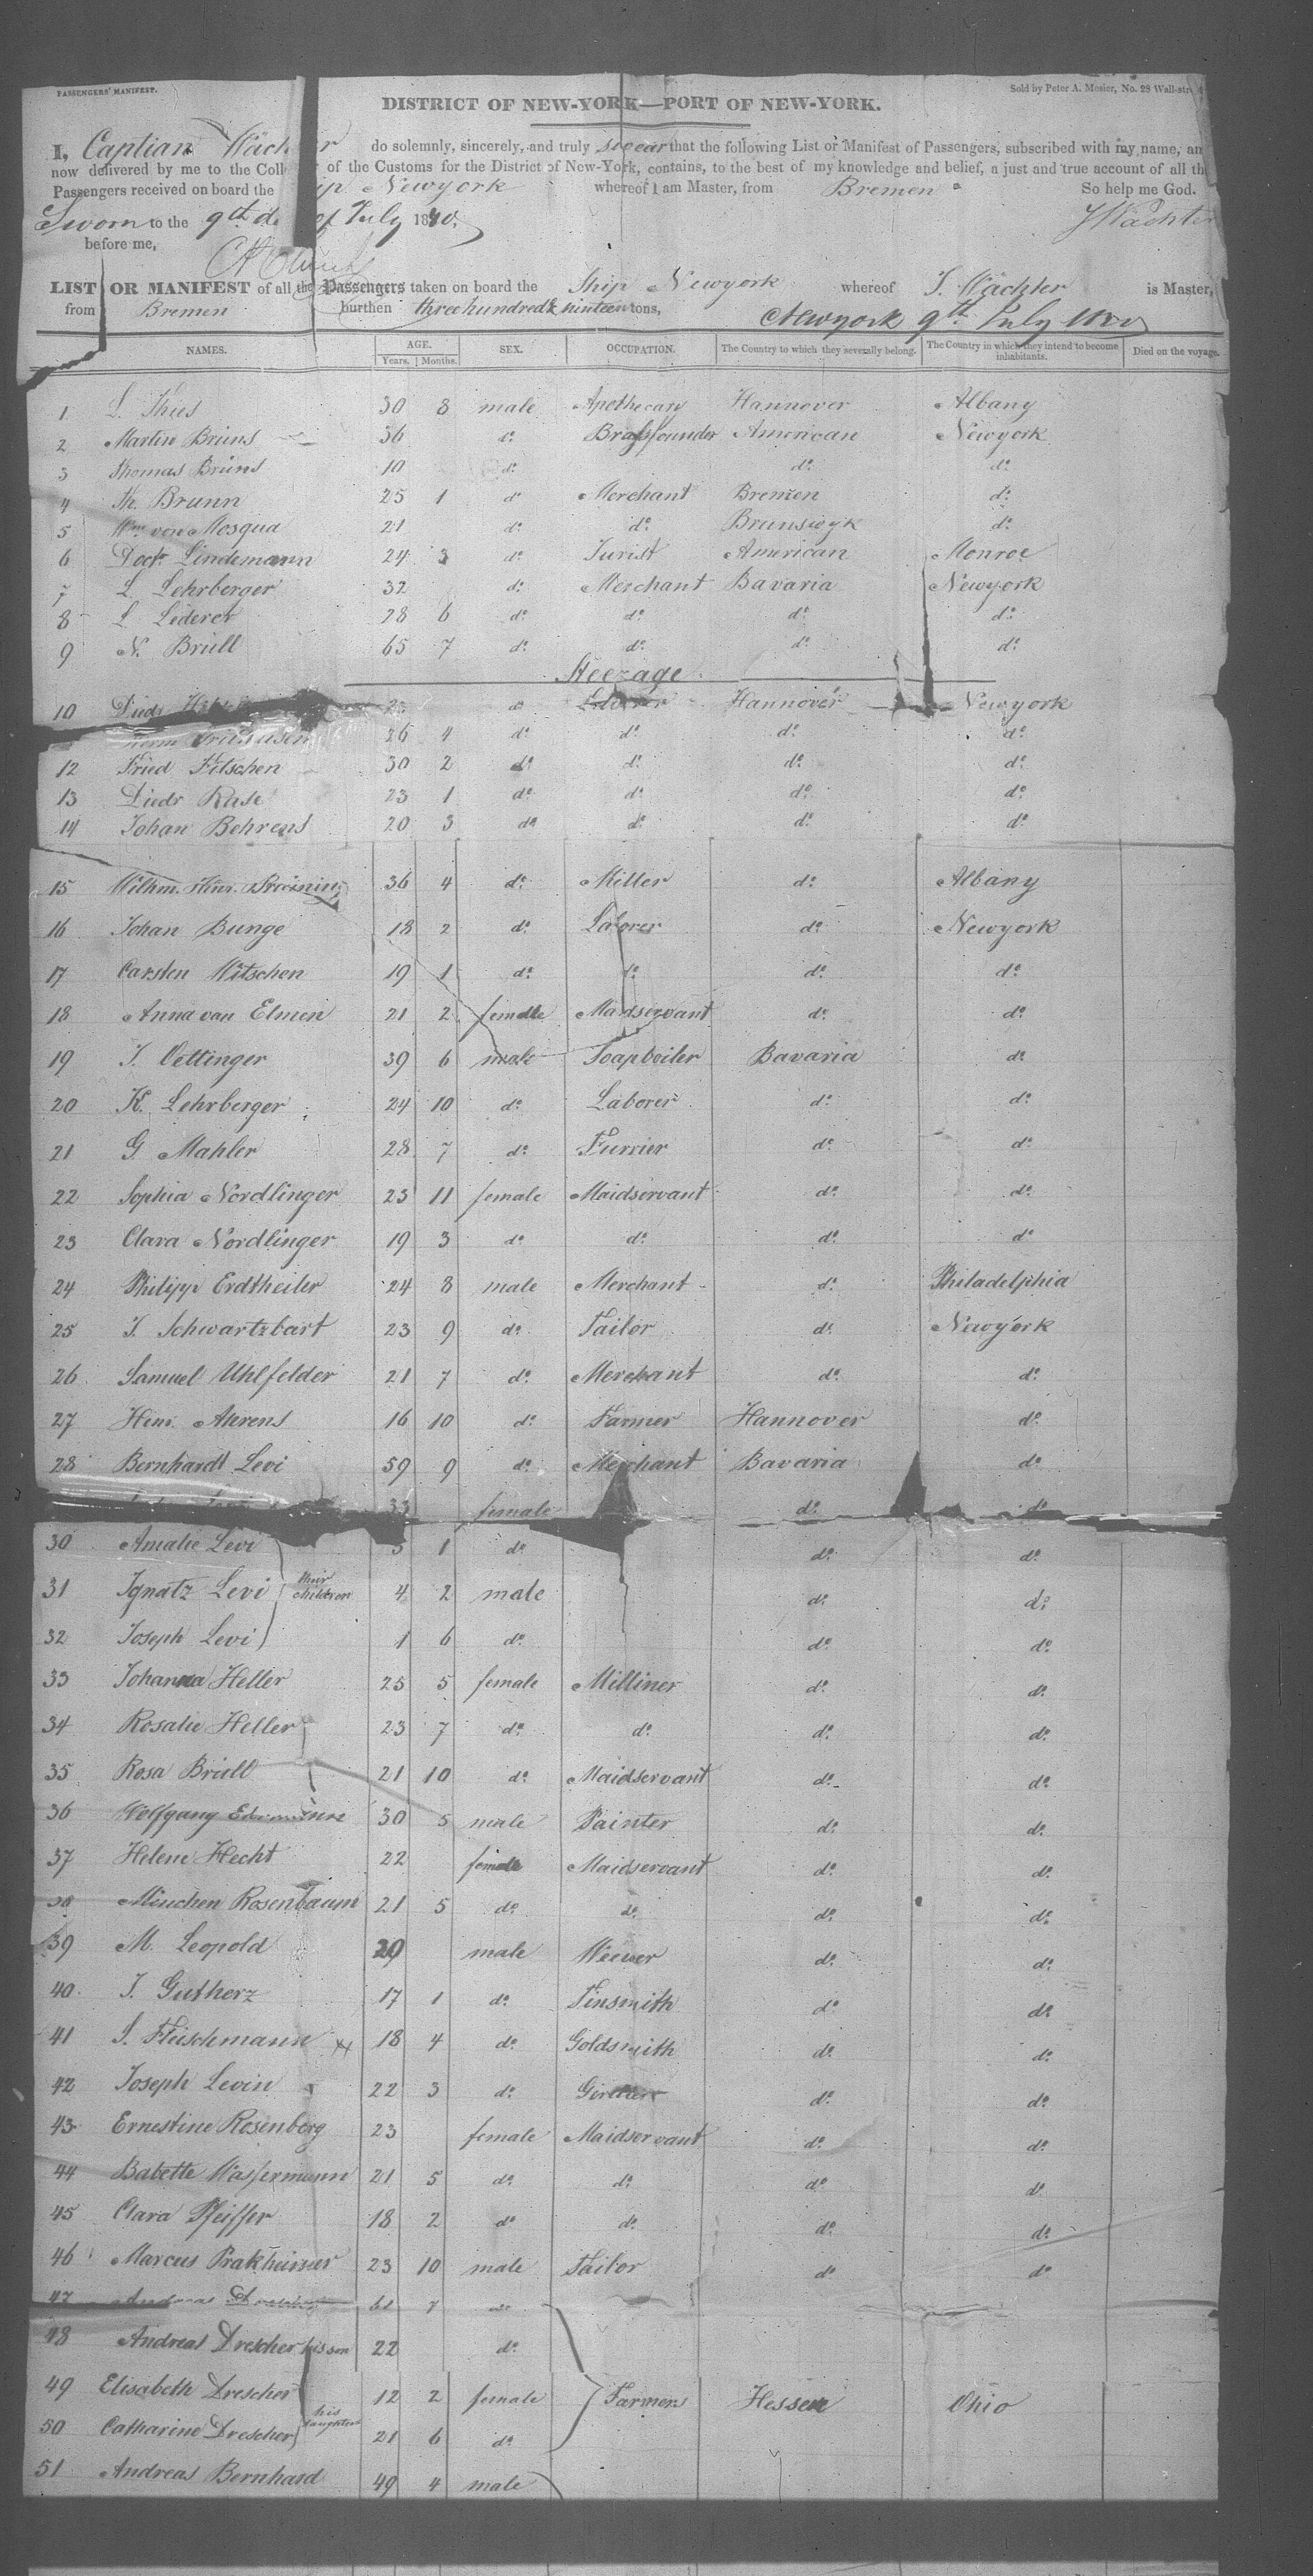 PASSENGERS' MANIFEST.
Sold by Peter A. Mesier, No. 28 Wall-str
DISTRICT OF NEW-YORK—PORT OF NEW-YORK.
I, Captian Wäch r do solemnly, sincerely, and truly swear that the following List or Manifest of Passengers, subscribed with my name, an
now delivered by me to the Coll of the Customs for the District of New-York, contains, to the best of my knowledge and belief, a just and true account of all th
Passengers received on board the ip Newyork whereof I am Master, from Bremen So help me God.
Sworn to the 9th d of July 1840. J Wächter
before me,
LIST OR MANIFEST of all the Passengers taken on board the Ship Newyork whereof J. Wächter is Master,
from Bremen burthen threehundred & ninteen tons, Newyork 9th July
NAMES. AGE. SEX. OCCUPATION. The Country to which they severally belong. The Country in which they intend to become inhabitants. Died on the voyage.
Years. Months.
1 L. Thies 30 8 male Apothecary Hannover Albany
2 Martin Brüns 36 do. Brassfounder American Newyork
3 Thomas Brüns 10 do. do. do.
4 Th. Brunn 25 1 do. Merchant Bremen do.
5 Wm. von Mosqua 21 do. do. Brunswyk do.
6 Doctr. Lindemann 24 3 do. Jurist American Monroe
7 L. Lehrberger 32 do. Merchant Bavaria Newyork
8 L. Lederer 28 6 do. do. do. do.
9 N. Brüll 65 7 do. do. do. do.
Steerage
10 Diedr. 23 do. Laborer Hannover Newyork
26 4 do. do. do. do.
12 Fried Fitschen 30 2 do. do. do. do.
13 Diedr Ruse 23 1 do. do. do. do.
14 Johan Behrens 20 3 do. do. do. do.
15 Wilhm. Hinr. 36 4 do. Miller do. Albany
16 Johan Bunge 18 2 do. Laborer do. Newyork
17 Carsten Witschen 19 1 do. do. do. do.
18 Anna van Elmen 21 2 female Maidservant do. do.
19 J. Oettinger 39 6 male Soapboiler Bavaria do.
20 K. Lehrberger 24 10 do. Laborer do. do.
21 G. Mahler 28 7 do. Furrier do. do.
22 Sophia Nördlinger 23 11 female Maidservant do. do.
23 Clara Nördlinger 19 3 do. do. do. do.
24 Philipp Erdtheiler 24 8 male Merchant do. Philadelphia
25 J. Schwartzbart 23 9 do. Tailor do. Newyork
26 Samuel Uhlfelder 21 7 do. Merchant do. do.
27 Hinr. Ahrens 16 10 do. Farmer Hannover do.
28 Bernhardt Levi 59 9 do. Merchant Bavaria do.
33 female do. do.
30 Amalie Levi 5 1 do. do. do.
31 Ignatz Levi their children 4 2 male do. do.
32 Joseph Levi 1 6 do. do. do.
33 Johanna Heller 25 5 female Milliner do. do.
34 Rosalie Heller 23 7 do. do. do. do.
35 Rosa Brüll 21 10 do. Maidservant do. do.
36 Wolfgang 30 5 male Painter do. do.
37 Helene Hecht 22 female Maidservant do. do.
38 Minchen Rosenbaum 21 5 do. do. do. do.
39 M. Leopold 29 male Weewer do. do.
40 J. Gutherz 17 1 do. Tinsmith do. do.
41 S. Fleischmann 18 4 do. Goldsmith do. do.
42 Joseph Levin 22 3 do. do. do.
43 Ernestine Rosenberg 23 female Maidservant do. do.
44 Babette Wassermann 21 5 do. do. do. do.
45 Clara Pfeiffer 18 2 do. do. do. do.
46 Marcus Prakheimer 23 10 male Tailor do. do.
47 Andreas Drescher 61 7 do.
48 Andreas Drescher his son 22 do.
49 Elisabeth Drescher 12 2 female Farmers Hessen Ohio
his daughters
50 Catharine Drescher 21 6 do.
51 Andreas Bernhard 49 4 male